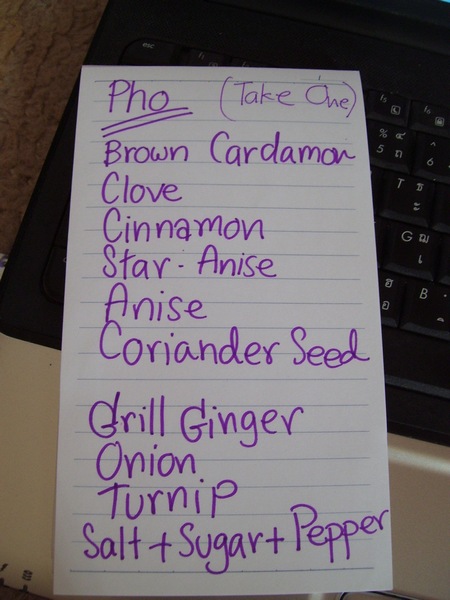 Pho (Take One)
Brown Cardamon
Clove
Cinnamon
Star-Anise
Anise
Coriander Seed
Grill Ginger
Onion
Turnip
Salt + Sugar + Pepper
esc
% ๔
5 ถ
6
T ธ
ะ
G ฌ
เ
B